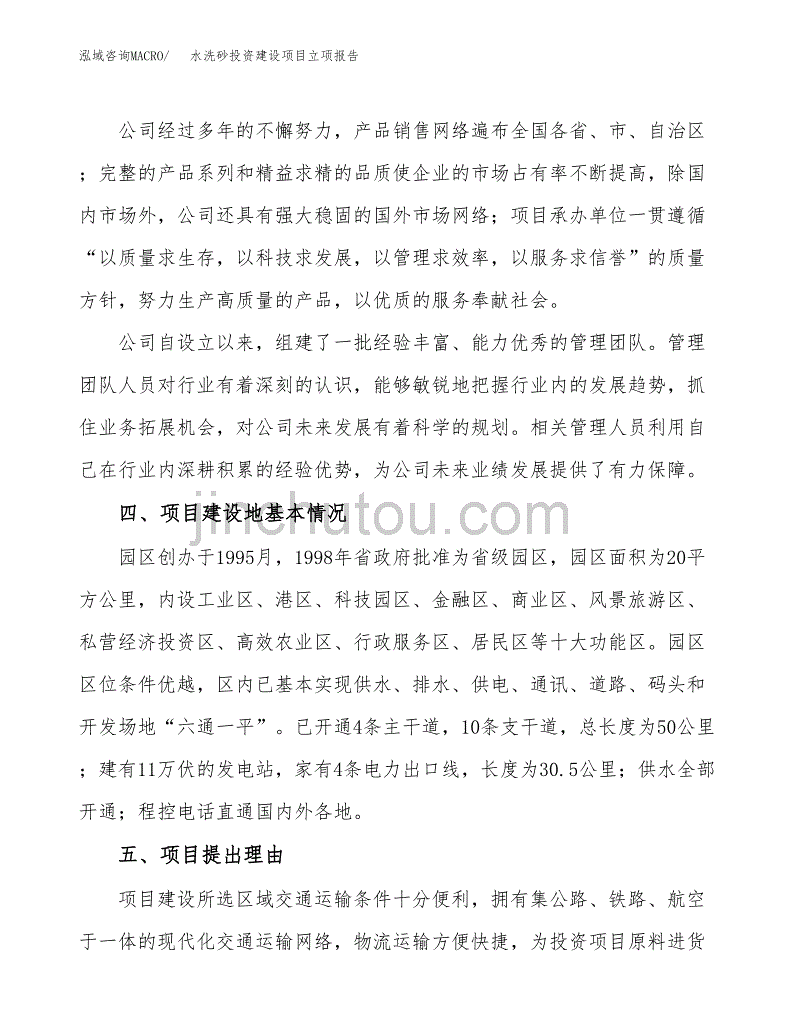 泓域咨询MACRO/ 水洗砂投资建设项目立项报告
公司经过多年的不懈努力，产品销售网络遍布全国各省、市、自治区
；完整的产品系列和精益求精的品质使企业的市场占有率不断提高，除国
内市场外，公司还具有强大稳固的国外市场网络；项目承办单位一贯遵循
“以质量求生存，以科技求发展，以管理求效率，以服务求信誉”的质量
方针，努力生产高质量的产品，以优质的服务奉献社会。
公司自设立以来，组建了一批经验丰富、能力优秀的管理团队。管理
团队人员对行业有着深刻的认识，能够敏锐地把握行业内的发展趋势，抓
住业务拓展机会，对公司未来发展有着科学的规划。相关管理人员利用自
己在行业内深耕积累的经验优势，为公司未来业绩发展提供了有力保障。
四、项目建设地基本情况
jinchutou.com
园区创办于1995月，1998年省政府批准为省级园区，园区面积为20平
方公里，内设工业区、港区、科技园区、金融区、商业区、风景旅游区、
私营经济投资区、高效农业区、行政服务区、居民区等十大功能区。园区
区位条件优越，区内已基本实现供水、排水、供电、通讯、道路、码头和
开发场地“六通一平”。已开通4条主干道，10条支干道，总长度为50公里
；建有11万伏的发电站，家有4条电力出口线，长度为30.5公里；供水全部
开通；程控电话直通国内外各地。
五、项目提出理由
项目建设所选区域交通运输条件十分便利，拥有集公路、铁路、航空
于一体的现代化交通运输网络，物流运输方便快捷，为投资项目原料进货